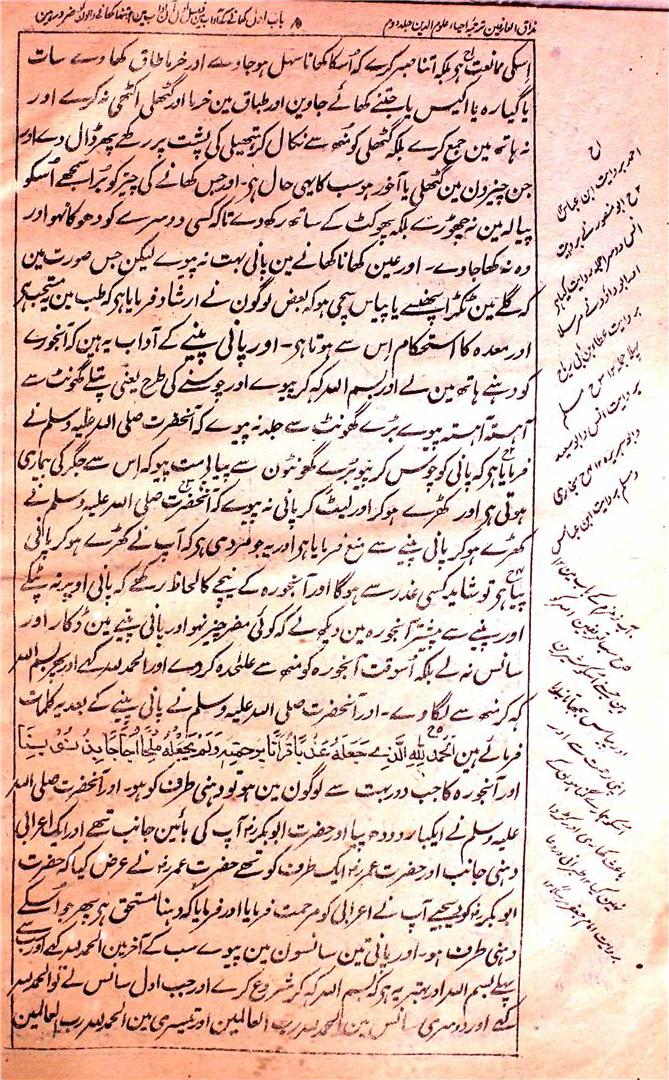 مذاق العارفین ترجمۂ احیاء علوم الدین جلد دوم
۸
باب اول کھانے کے آداب میں
اسکی ممانعت ہی بلکہ اتنا صبر کرے کہ اُسکا کھانا سہل ہو جاوے اور خرما طاق کھاوے سات
یا گیارہ یا اکیس یا جتنے کھائے جاوین اور طباق مین خرما اور گٹھلی اکٹھی نہ کرے اور
نہ ہاتھ مین جمع کرے بلکہ گٹھلی کو مُنھ سے نکال کر ہتھیلی کی پشت پر رکھے پھر ڈال دے اور
جن چیزون مین گٹھلی یا آخور ہو سب کا یہی حال ہی۔ اور جس کھانے کی چیز کو بُرا سمجھے اُسکو
پیالہ مین نہ چھوڑے بلکہ پھوکٹ کے ساتھ رکھدے تاکہ کسی دوسرے کو دھوکا نہو اور
وہ نہ کھا جاوے۔ اور عین کھانا کھانے مین پانی بہت نہ پیوے لیکن جس صورت مین
کہ گلے مین ٹکڑا پھنسے یا پیاس سچی ہو کہ بعض لوگون نے ارشاد فرمایا ہی کہ طب مین مستحب ہی
اور معدہ کا استحکام اس سے ہوتا ہی۔ اور پانی پینے کے آداب یہ ہین کہ آبخورے
کو دہنے ہاتھ مین لے اور بسم اللہ کہہ کر پیوے اور چوسنے کی طرح یعنی پتلے گھونٹ سے
آہستہ آہستہ پیوے بڑے گھونٹ سے جلد نہ پیوے کہ آنحضرت صلی اللہ علیہ وسلم نے
فرمایا ہی کہ پانی کو چوس کر پیو بڑے گھونٹون سے پیالی مت پیو کہ اس سے جگر کی بیماری
ہوتی ہی اور کھڑے ہو کر اور لیٹ کر پانی نہ پیوے کہ آنحضرت صلی اللہ علیہ وسلم نے
کھڑے ہو کر پانی پینے سے منع فرمایا ہی اور یہ جو مروی ہی کہ آپ نے کھڑے ہو کر پانی
پیا ہی تو شاید کسی عذر سے ہوگا اور آبخورہ کے نیچے کا لحاظ رکھے کہ پانی اوپر نہ ٹپکے
اور پینے سے پیشتر آبخورہ مین دیکھ لے کہ کوئی مضر چیز نہو اور پانی پینے مین ڈکار اور
سانس نہ لے بلکہ اُسوقت آبخورہ کو منھ سے علیحدہ کر دے اور الحمد للہ کہے اور پھر بسم اللہ
کہہ کر منھ سے لگاوے۔ اور آنحضرت صلی اللہ علیہ وسلم نے پانی پینے کے بعد یہ کلمات
فرمائے ہین اَلْحَمْدُ لِلّٰهِ الَّذِیْ جَعَلَهٗ عَذْبًا فُرَاتًا بِرَحْمَتِهٖ وَلَمْ یَجْعَلْهُ مِلْحًا اُجَاجًا بِذُنُوْبِنَا
اور آبخورہ کا جب دور بہت سے لوگون مین ہو تو دہنی طرف کو ہو۔ اور آنحضرت صلی اللہ
علیہ وسلم نے ایکبار دودھ پیا اور حضرت ابو بکر آپ کی بائین جانب تھے اور ایک اعرابی
دہنی جانب اور حضرت عمر ایک طرف کو تھے حضرت عمر نے عرض کیا کہ حضرت
ابو بکر کو دیجیے آپ نے اعرابی کو مرحمت فرمایا اور فرمایا کہ دہنا مستحق ہی پھر جو اُسکے
دہنی طرف ہو۔ اور پانی تین سانسون مین پیوے سب کے آخر مین الحمد للہ کہے اور سب سے
پہلے بسم اللہ اور بہتر یہ ہی کہ بسم اللہ کہہ کر شروع کرے اور جب اول سانس لے تو الحمد للہ
کہے اور دوسری سانس مین الحمد للہ رب العالمین اور تیسری مین الحمد للہ رب العالمین
احمد بروایت ابن عباس
ابو منصور نے بروایت
انس
اور ابو داود نے مرسلا
بروایت عطا بن ابی رباح
پہلا جملہ ۱۲ مسلم
بروایت انس و ابو سعید
و ابو ہریرہ ۱۲ بخاری
و مسلم بروایت ابن عباس